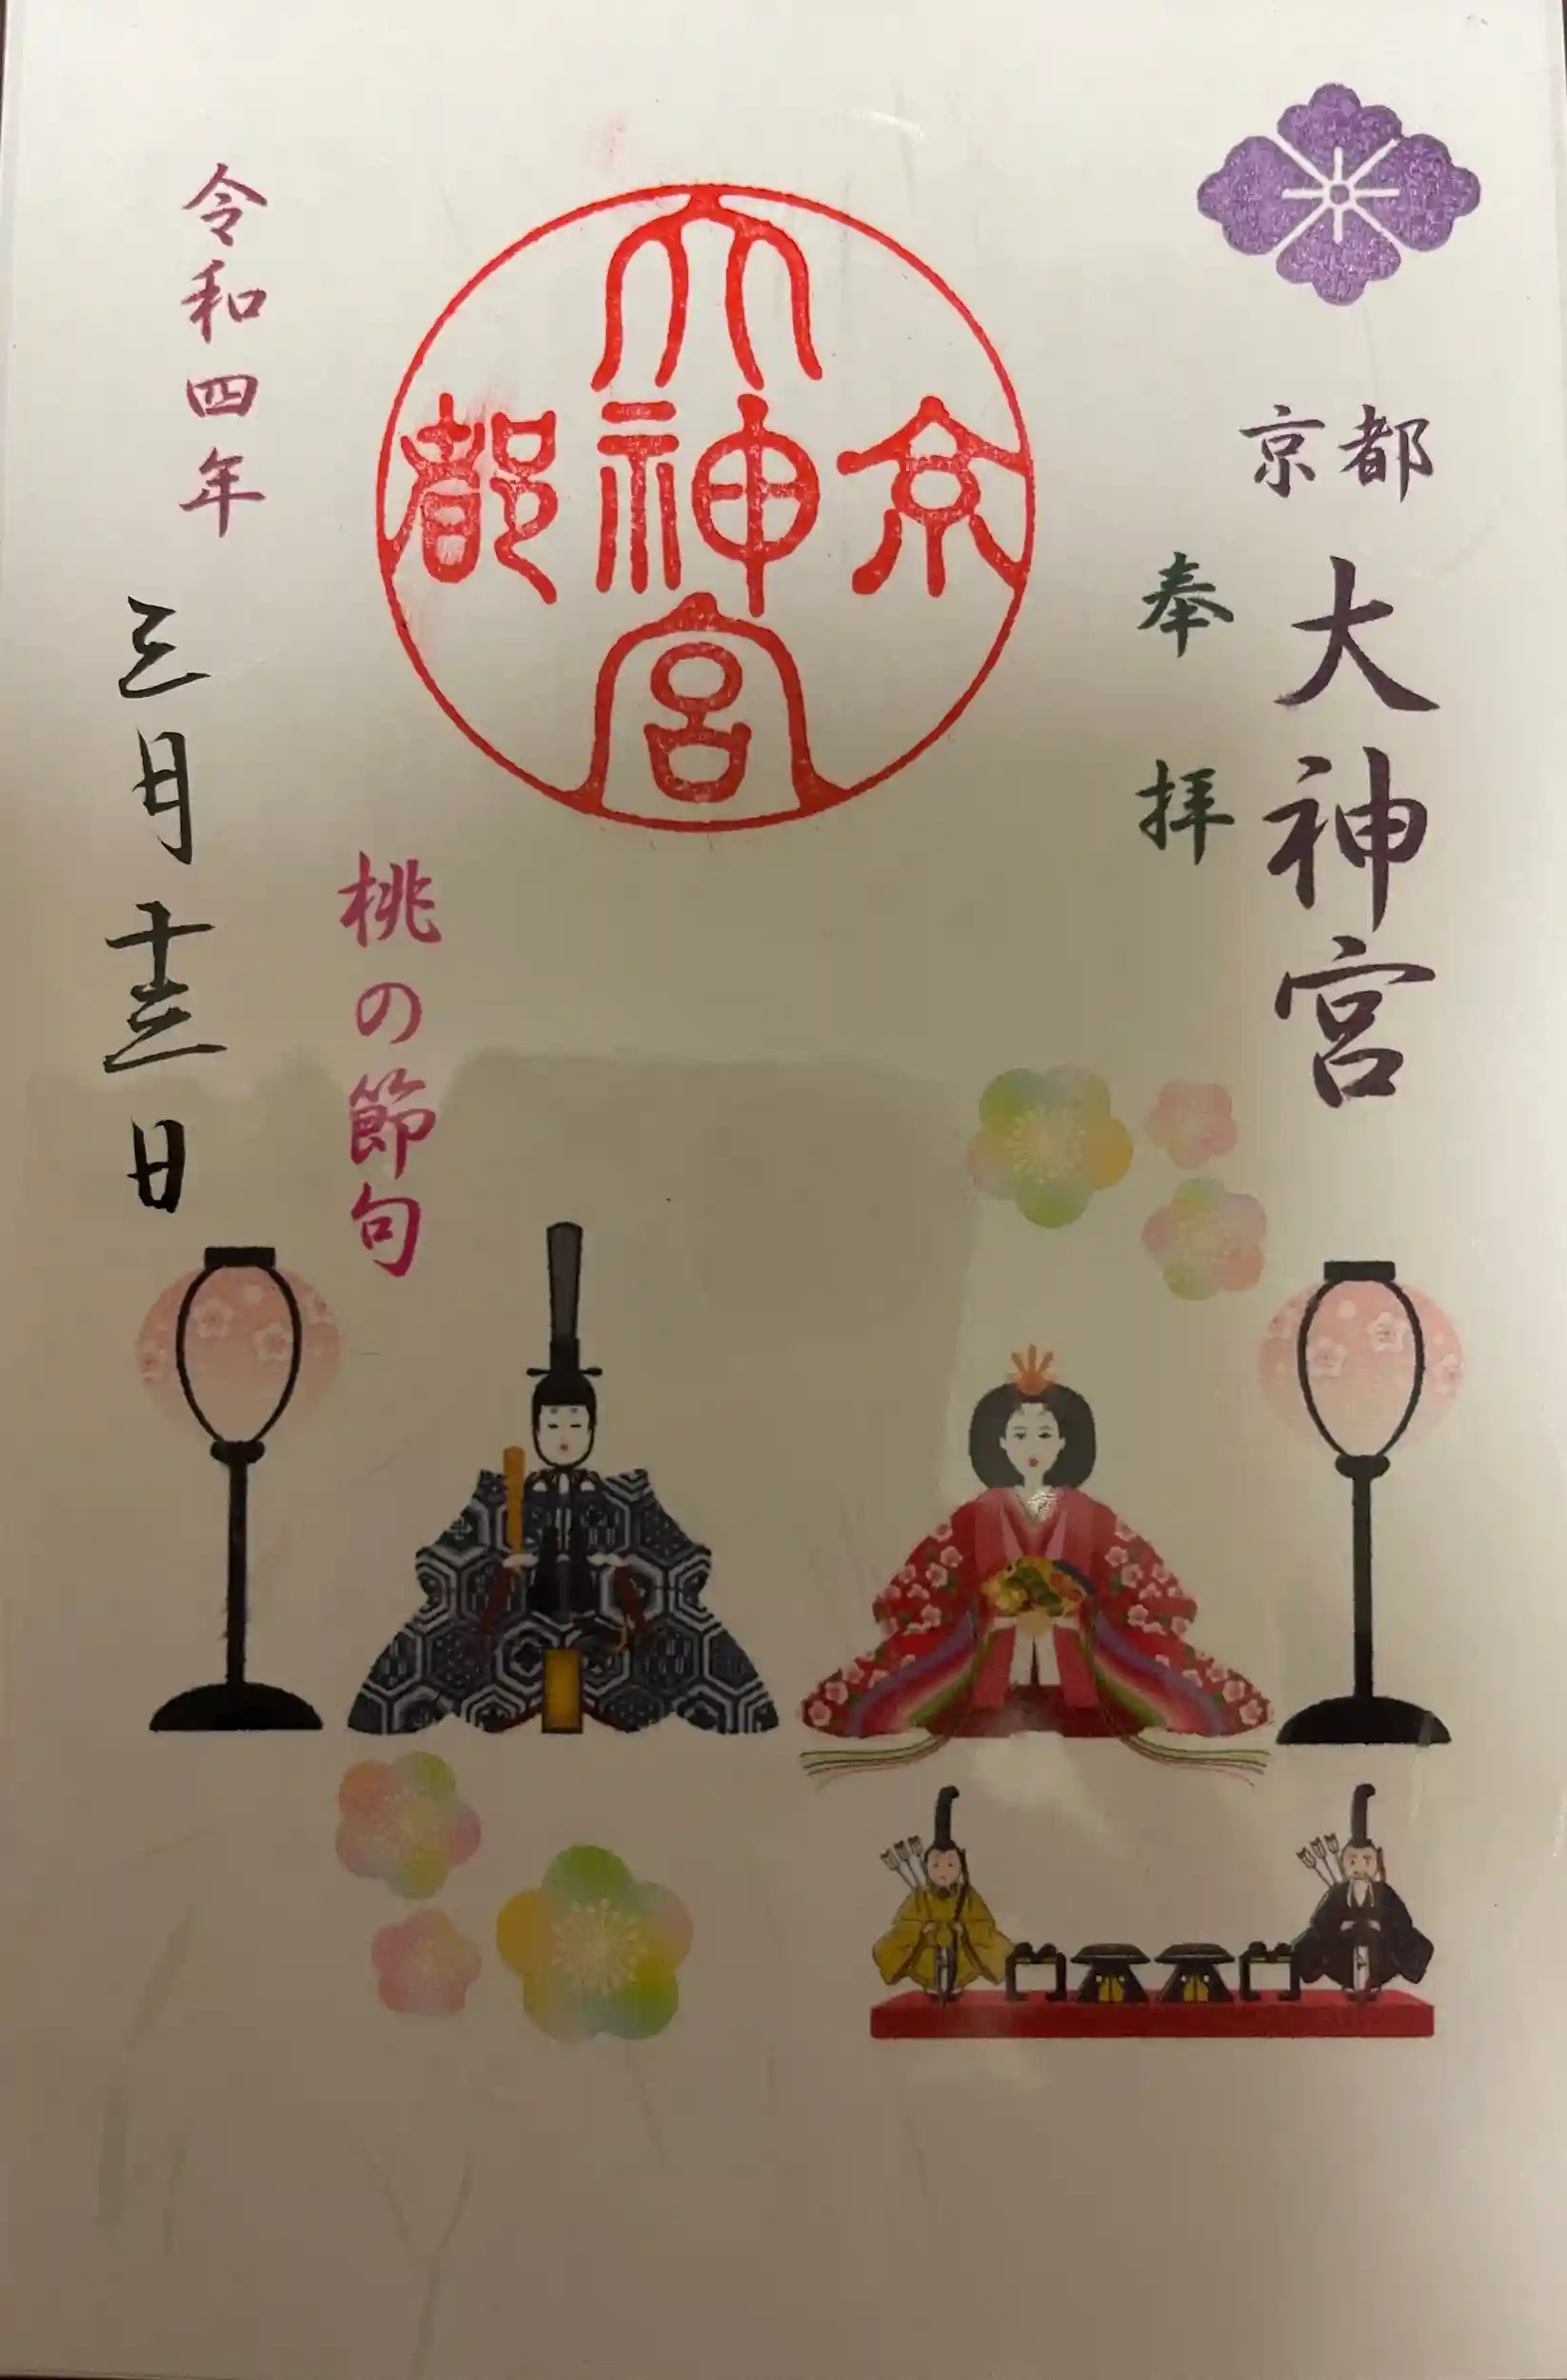 京都
大神宮
奉拝
京都
大神宮
桃の節句
令和四年
三月十三日